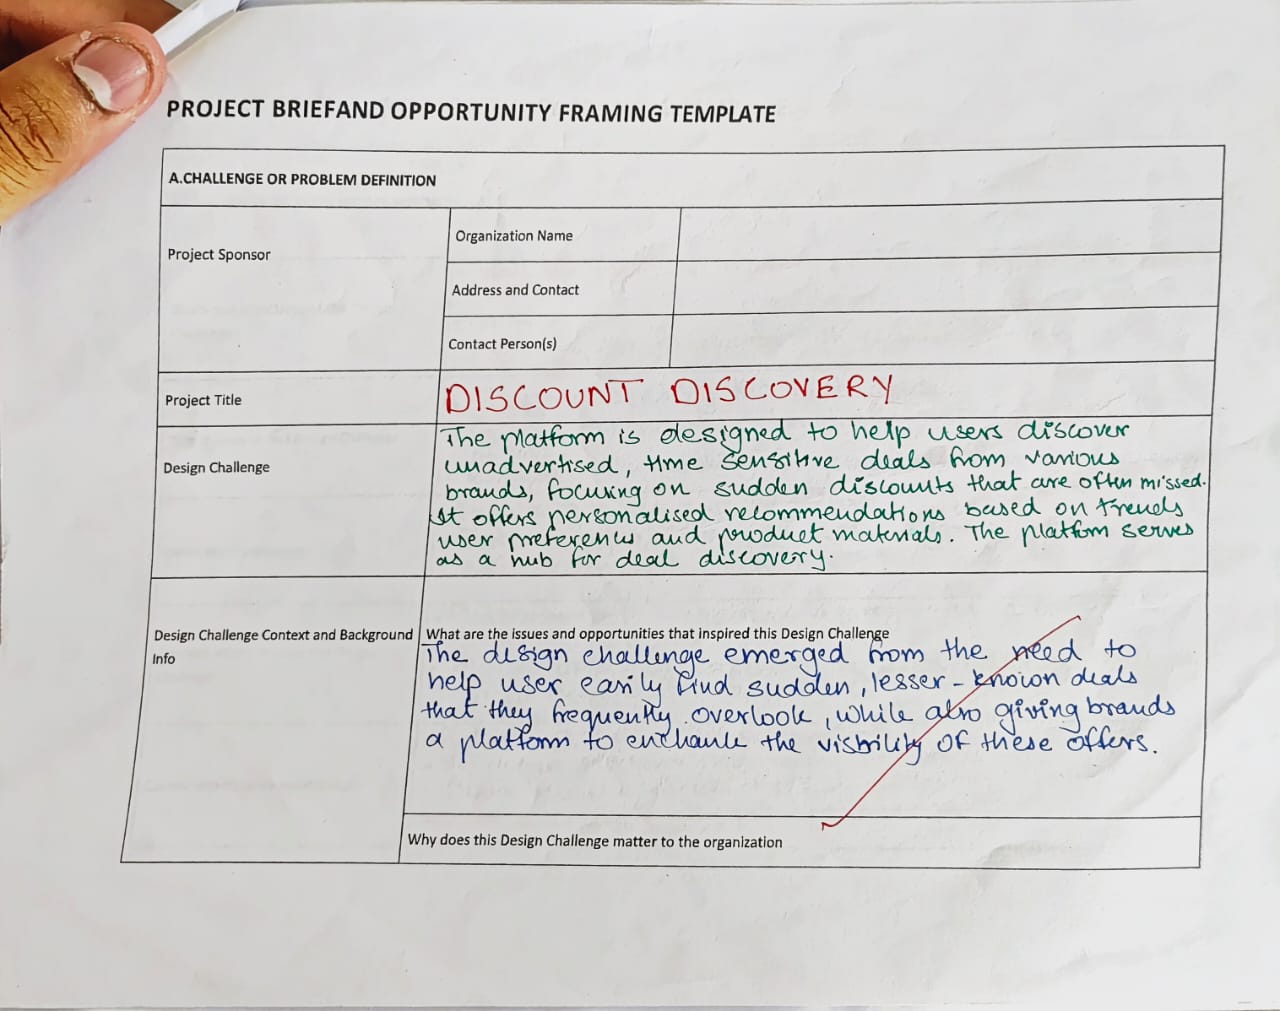 PROJECT BRIEFAND OPPORTUNITY FRAMING TEMPLATE
A.CHALLENGE OR PROBLEM DEFINITION
Project Sponsor
Organization Name
Address and Contact
Contact Person(s)
Project Title
DISCOUNT DISCOVERY
Design Challenge
The platform is designed to help users discover
unadvertised, time sensitive deals from various
brands, focusing on sudden discounts that are often missed.
It offers personalised recommendations based on trends
user preferences and product materials. The platform serves
as a hub for deal discovery.
Design Challenge Context and Background
Info
What are the issues and opportunities that inspired this Design Challenge
The design challenge emerged from the need to
help user easily find sudden, lesser-known deals
that they frequently overlook, while also giving brands
a platform to enchance the visibility of these offers.
Why does this Design Challenge matter to the organization